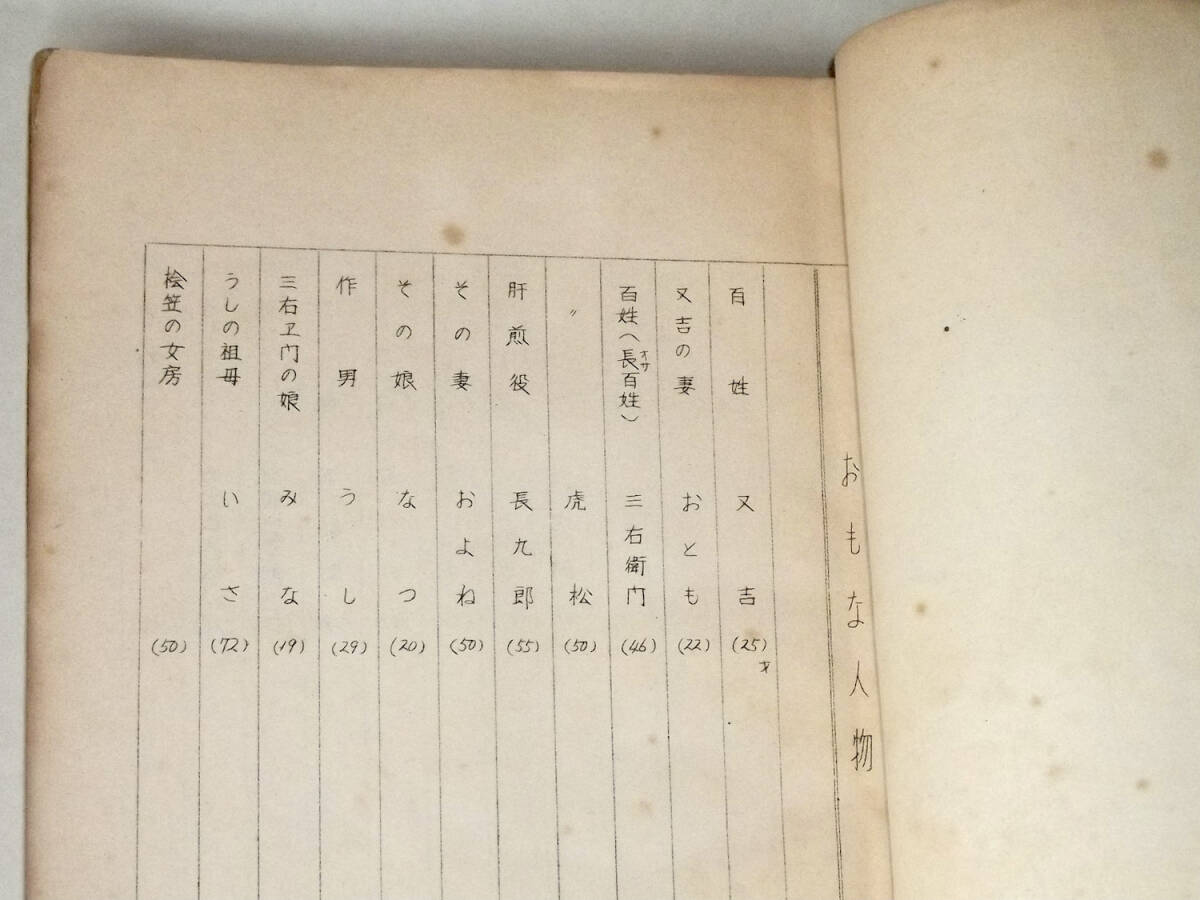 おもな人物
百姓 又吉 (25)才
又吉の妻 おとも (22)
百姓(長百姓) オサ 三右衛門 (46)
〃 虎松 (50)
肝煎役 長九郎 (55)
その妻 およね (50)
その娘 なつ (20)
作男 うし (29)
三右ヱ門の娘 みな (19)
うしの祖母 いさ (72)
桧笠の女房 (50)